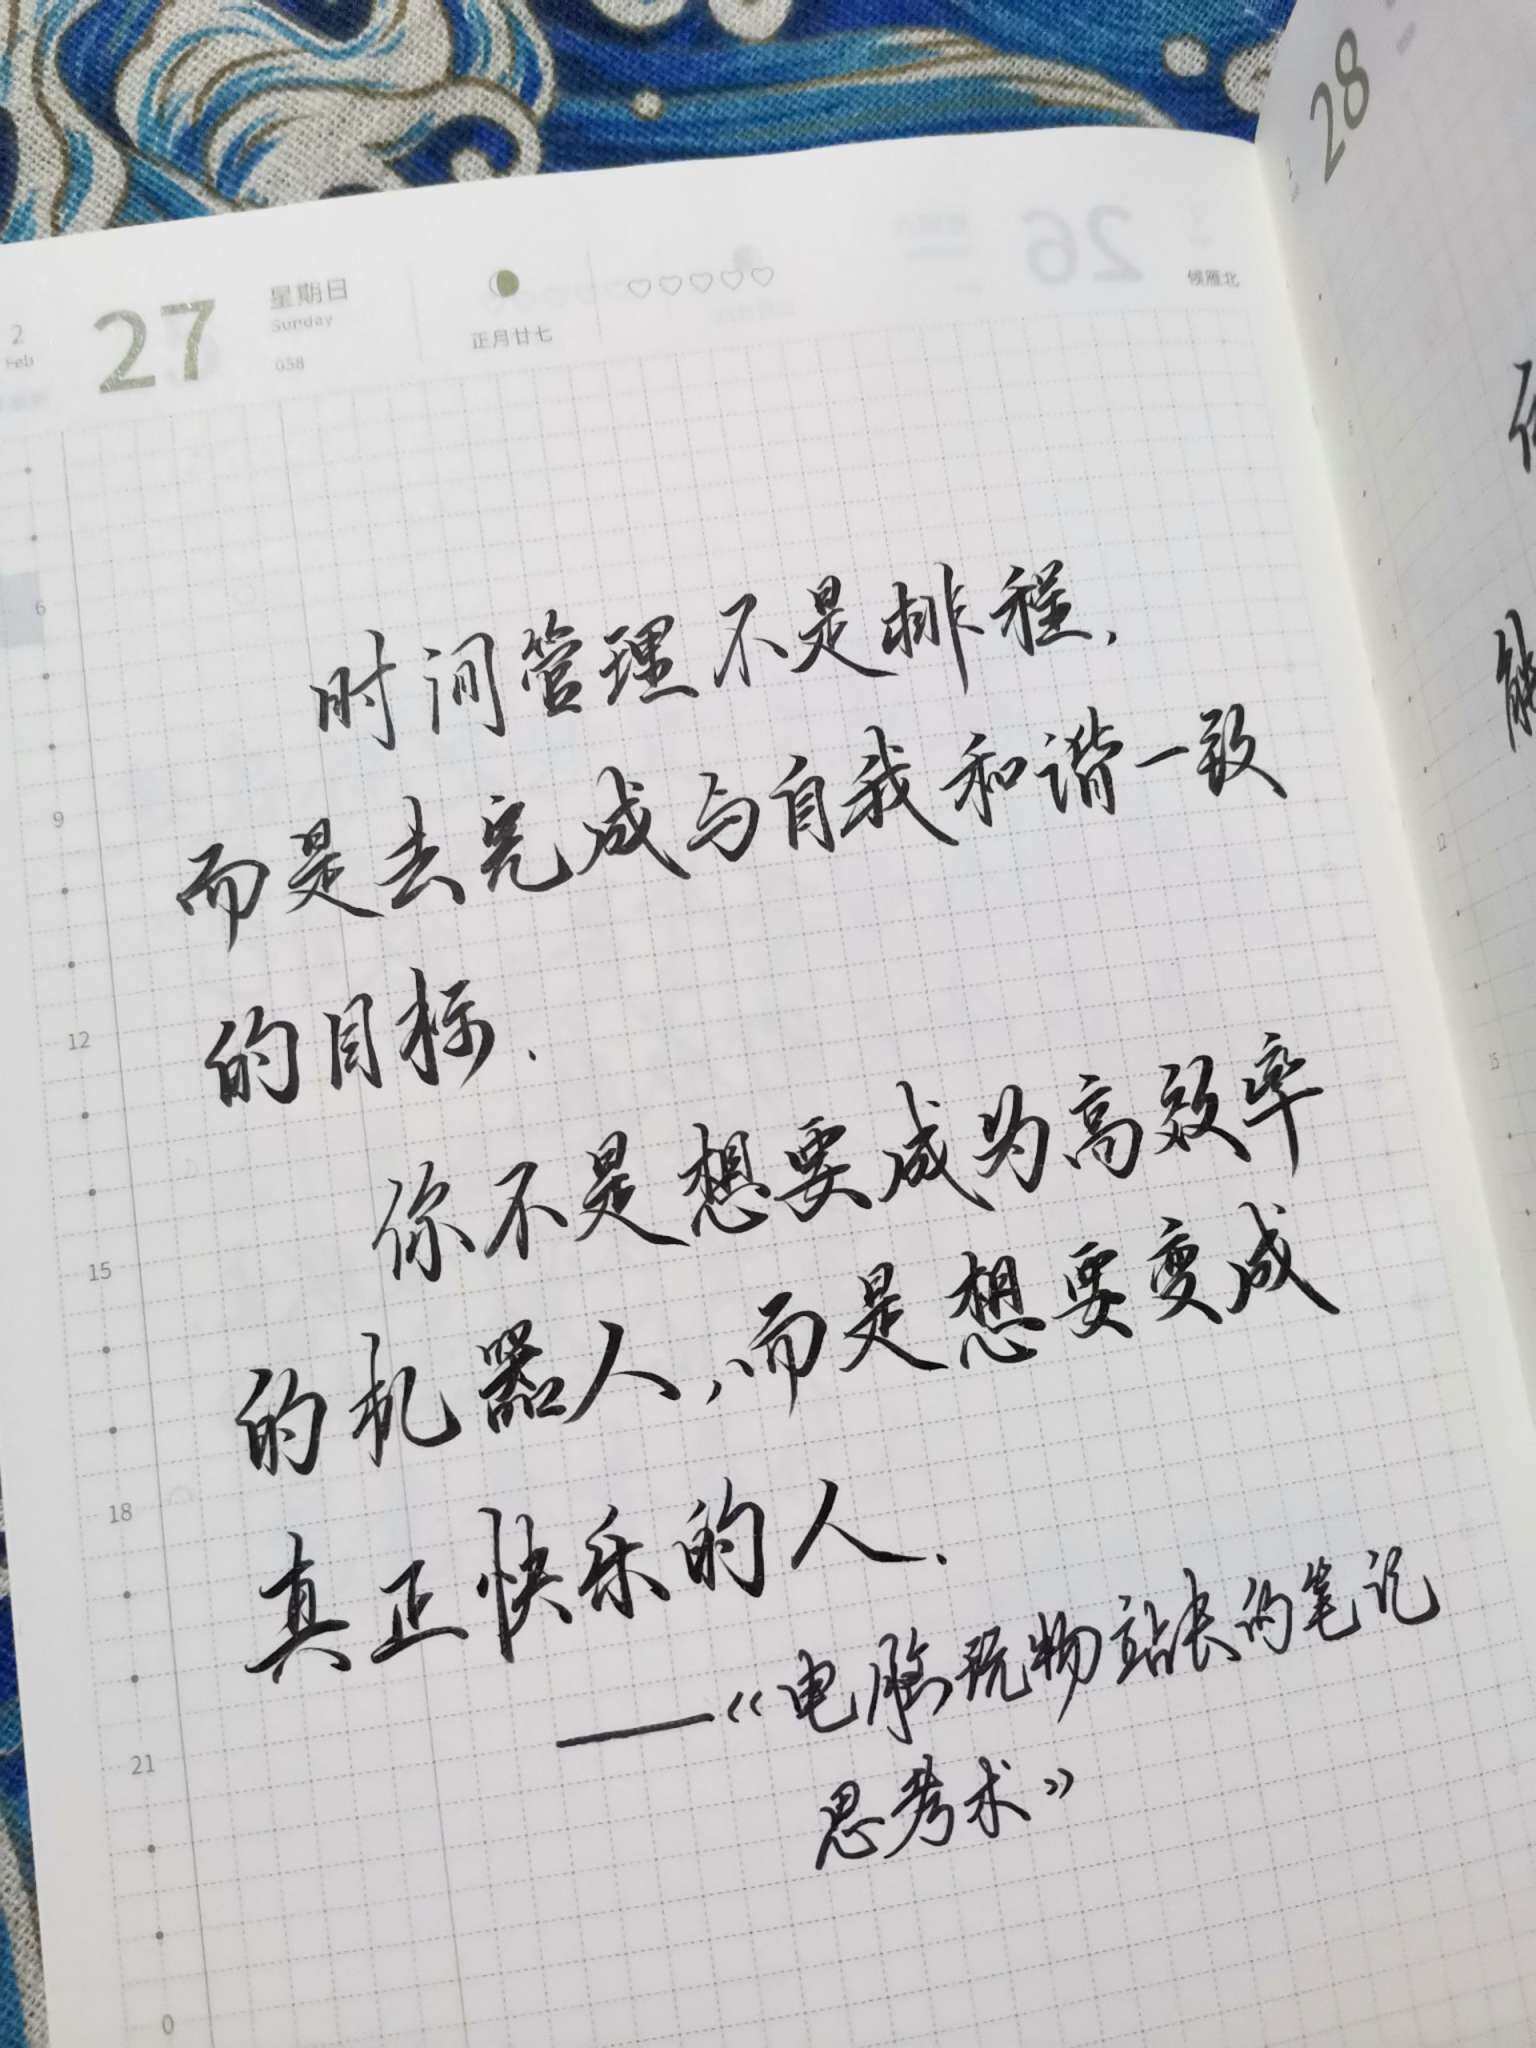 2
Feb
27
星期日
Sunday
058
正月廿七
候雁北
28
时间管理不是排程,
而是去完成与自我和谐一致
的目标.
你不是想要成为高效率
的机器人,而是想要变成
真正快乐的人.
——《电脑玩物站长的笔记
思考术》
6
9
12
15
18
21
0
12
15
能